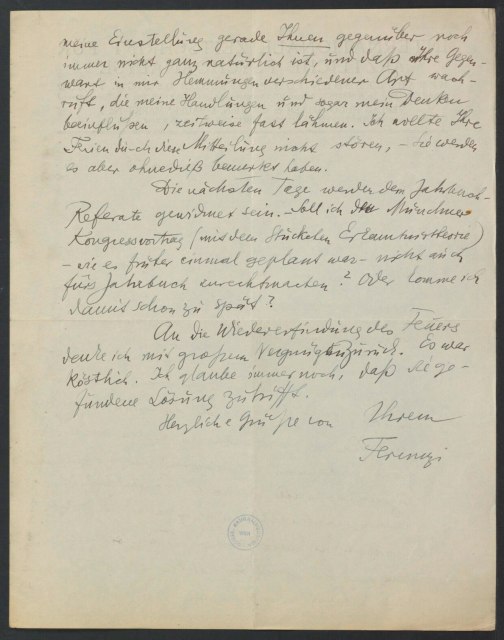 meine Einstellung gerade Ihnen gegenüber noch
immer nicht ganz natürlich ist, und daß Ihre Gegen-
wart in mir Hemmungen verschiedener Art wach-
ruft, die meine Handlungen und sogar mein Denken
beeinflußen, zeitweise fast lähmen. Ich wollte Ihre
Ferien durch diese Mitteilung nicht stören, – Sie werden
es aber ohnedieß bemerkt haben.
Die nächsten Tage werden dem Jahrbuch-
Referate gewidmet sein. – Soll ich den Münchner
Kongressvortrag (mit dem Stückchen Erkenntnistheorie)
– wie es früher einmal geplant war – nicht auch
fürs Jahrbuch zurechtmachen? Oder komme ich
damit schon zu spät?
An die Wiedererfindung des Feuers
denke ich mit großem Vergnügen zurück. Es war
köstlich. Ich glaube immer noch, daß die ge-
fundene Lösung zutrifft.
Herzliche Grüße von Ihrem
Ferenczi